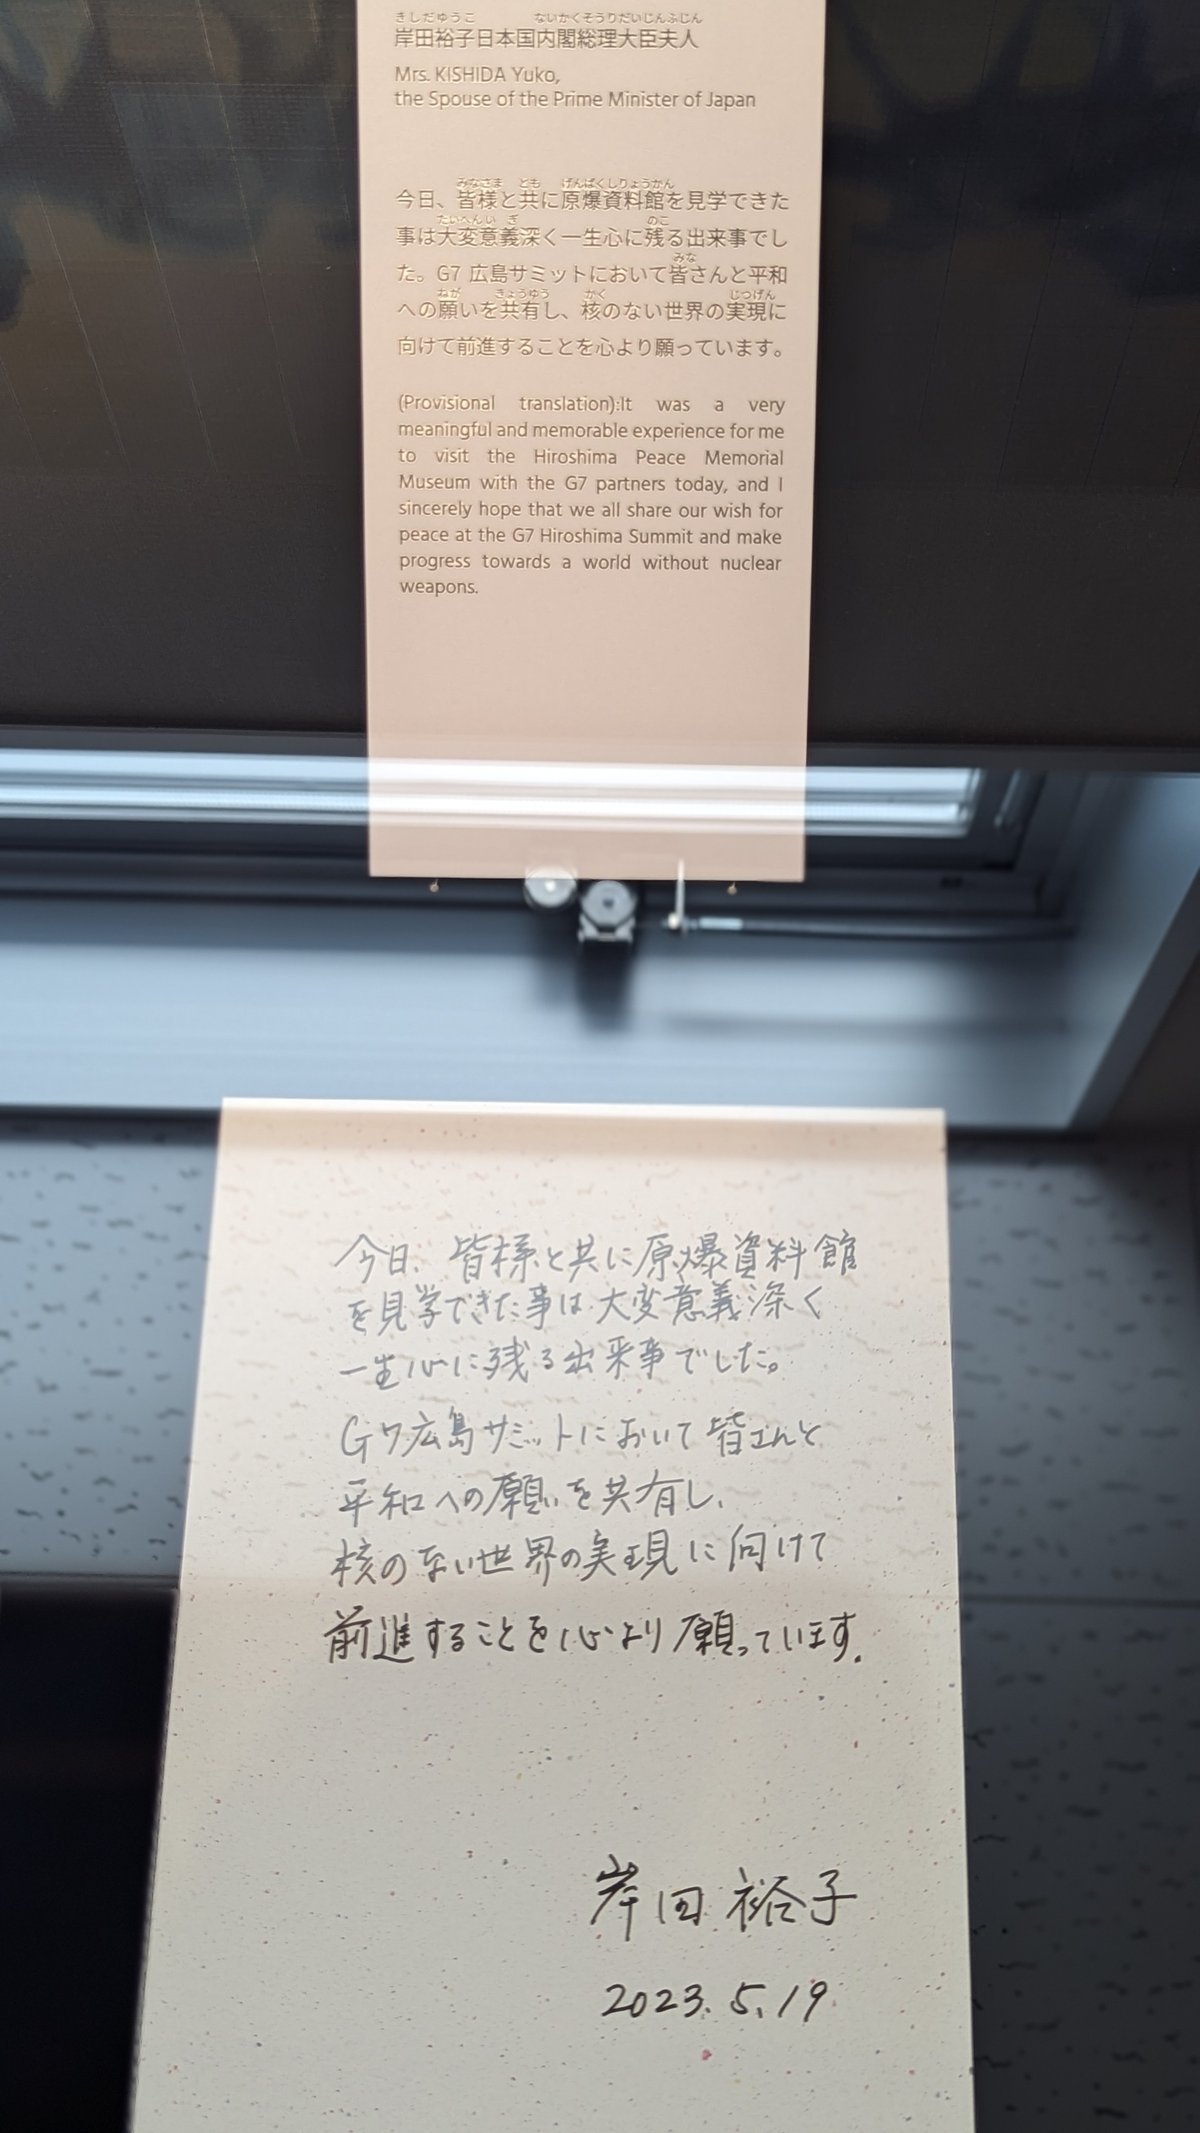 きしだゆうこ ないかくそうりだいじんふじん
岸田裕子日本国内閣総理大臣夫人
Mrs. KISHIDA Yuko,
the Spouse of the Prime Minister of Japan
みなさま とも げんばくしりょうかん
今日、皆様と共に原爆資料館を見学できた
たいへんいぎ のこ
事は大変意義深く一生心に残る出来事でし
みな
た。G7 広島サミットにおいて皆さんと平和
ねが きょうゆう かく じつげん
への願いを共有し、核のない世界の実現に
向けて前進することを心より願っています。
(Provisional translation):It was a very
meaningful and memorable experience for me
to visit the Hiroshima Peace Memorial
Museum with the G7 partners today, and I
sincerely hope that we all share our wish for
peace at the G7 Hiroshima Summit and make
progress towards a world without nuclear
weapons.
今日、皆様と共に原爆資料館
を見学できた事は大変意義深く
一生心に残る出来事でした。
G7広島サミットにおいて皆さんと
平和への願いを共有し、
核のない世界の実現に向けて
前進することを心より願っています。
岸田 裕子
2023.5.19